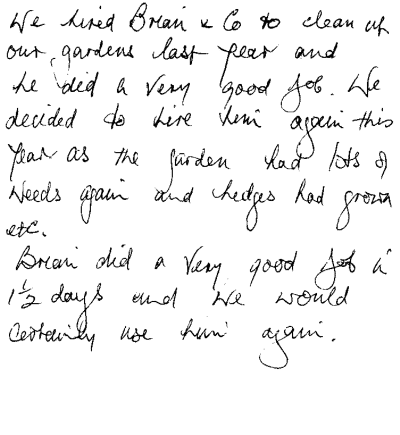 We hired Brian & Co to clean up
our gardens last year and
he did a very good job. We
decided to hire him again this
year as the garden had lots of
weeds again and hedges had grown
etc.
Brian did a very good job in
1½ days and we would
certainly use him again.